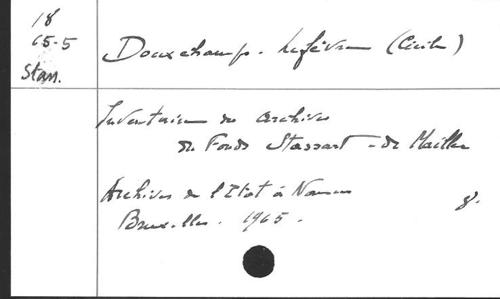 18
65-5
Stass.
Douxchamps-Lefèvre (Cécile)
Inventaire des archives
du Fonds Stassart - de Maillen
Archives de l'Etat à Namur
Bruxelles. 1965. 8°.